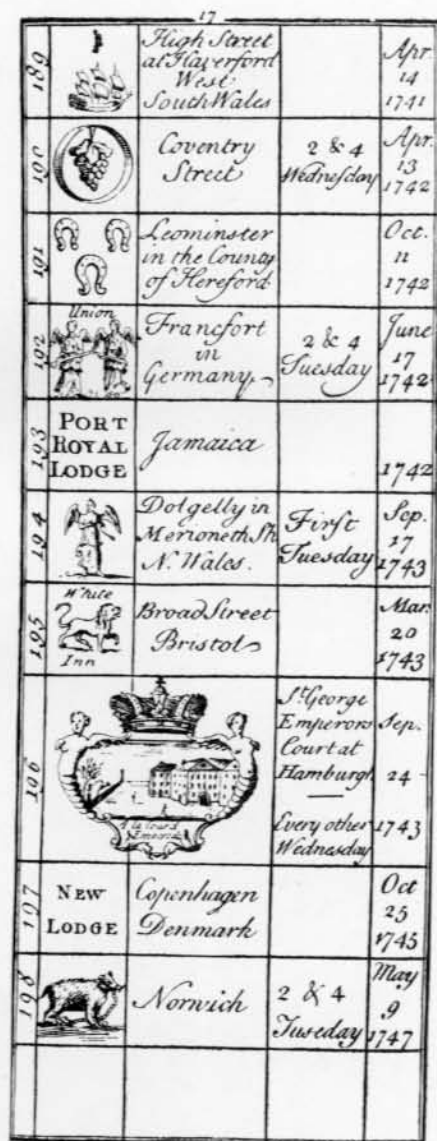 17
189
High Street
at Haverford
West
South Wales
Apr
14
1741
190
Coventry
Street
2 & 4
Wednesday
Apr.
13
1742
191
Leominster
in the County
of Hereford
Oct.
11
1742
192
Union
Francfort
in
Germany
2 & 4
Tuesday
June
17
1742
193
PORT
ROYAL
LODGE
Jamaica
1742
194
Dolgelly in
Merioneth Sh
N. Wales.
First
Tuesday
Sep.
17
1743
195
White
Inn
Broad Street
Bristol
Mar.
20
1743
196
St. George
Emperors
Court at
Hamburgh
Every other
Wednesday
Sep.
24
1743
197
NEW
LODGE
Copenhagen
Denmark
Oct
25
1745
198
Norwich
2 & 4
Tuseday
May
9
1747